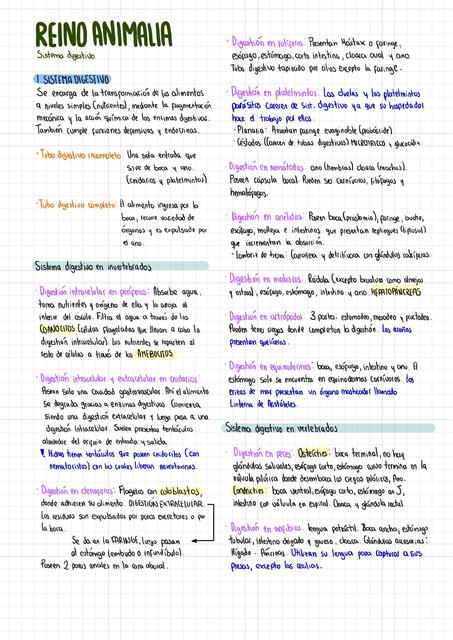 REINO ANIMALIA
Sistema digestivo
1. SISTEMA DIGESTIVO
Se encarga de la transformación de los alimentos
a niveles simples (nutrientes), mediante la fragmentación
mecánica y la acción química de las enzimas digestivas.
También cumple funciones defensivas y endocrinas.
· Tubo digestivo incompleto: Una sola entrada que
sirve de boca y ano.
(cnidarios y platelmintos)
· Tubo digestivo completo: El alimento ingresa por la
boca, recorre variedad de
órganos y es expulsado por
el ano.
Sistema digestivo en invertebrados
· Digestión intracelular en poríferos: Absorbe agua,
toma nutrientes y oxígeno de ella y la arroja al
interior del ósculo. Filtra el agua a través de los
COANOCITOS (células flageladas que llevan a cabo la
digestión intracelular). Los nutrientes se reparten al
resto de células a través de los AMEBOCITOS
· Digestión intracelular y extracelular en cnidarios:
Poseen solo una cavidad gastrovascular. Ahí el alimento
se degrada gracias a enzimas digestivas. Comienza
siendo una digestión extracelular y luego pasa a una
digestión intracelular. Suelen presentar tentáculos
alrededor del orificio de entrada y salida.
Hidras tienen tentáculos que poseen cnidocitos (con
nematocistos) con los cuales liberan neurotoxinas.
· Digestión en ctenóforos: Plagados con coloblastos,
donde adhieren su alimento. DIGESTIÓN EXTRACELULAR
Los residuos son expulsados por poros excretores o por
la boca.
Se da en la FARINGE, luego pasan
al estómago (embudo o infundíbulo).
Poseen 2 poros anales en la zona aboral.
· Digestión en rotíferos: Presentan Mástax o faringe,
esófago, estómago, corto intestino, cloaca oval y ano.
Tubo digestivo tapizado por cilios excepto la faringe.
· Digestión en platelmintos: Las duelas y los platelmintos
parásitos carecen de sist. digestivo ya que su hospedador
hace el trabajo por ellos.
· Planaria: Presentan faringe evaginable (probóscide)
· Céstodos (Carecen de tubos digestivos) MICROTRICOS y glucocálix
· Digestión en nemátodos: ano (hembras) cloaca (machos).
Poseen cápsula bucal. Pueden ser carnívoros, fitófagos y
hematófagos.
· Digestión en anélidos: Poseen boca (prostomio), faringe, buche,
esófago, molleja e intestinos que presentan repliegues (tiflosol)
que incrementan la absorción.
· Lombriz de tierra: Carroñera y detritívora con glándulas calcíferas.
· Digestión en moluscos: Rádula (excepto bivalvos como almejas
y ostras), esófago, estómago, intestino y ano. HEPATOPÁNCREAS
· Digestión en artrópodos: 3 partes: estomodeo, mesodeo y proctodeo.
Pueden tener ciegos donde completan la digestión. Las arañas
presentan quelíceros.
· Digestión en equinodermos: boca, esófago, intestino y ano. El
estómago solo se encuentra en equinodermos carnívoros. Los
erizos de mar presentan un órgano masticador llamado
Linterna de Aristóteles.
Sistema digestivo en vertebrados
· Digestión en peces: Osteíctios: boca terminal, no hay
glándulas salivales, esófago corto, estómago como termina en la
válvula pilórica donde desembocan los ciegos pilóricos, Ano.
Condrictios: boca ventral, esófago corto, estómago en J,
intestino con válvula en espiral. Cloaca, y glándula rectal
· Digestión en anfibios: lengua retráctil. Boca ancha, estómago
tubular, intestino delgado y grueso, cloaca. Glándulas accesorias:
Hígado - Páncreas. Utilizan su lengua para capturar a sus
presas, excepto las cecilias.